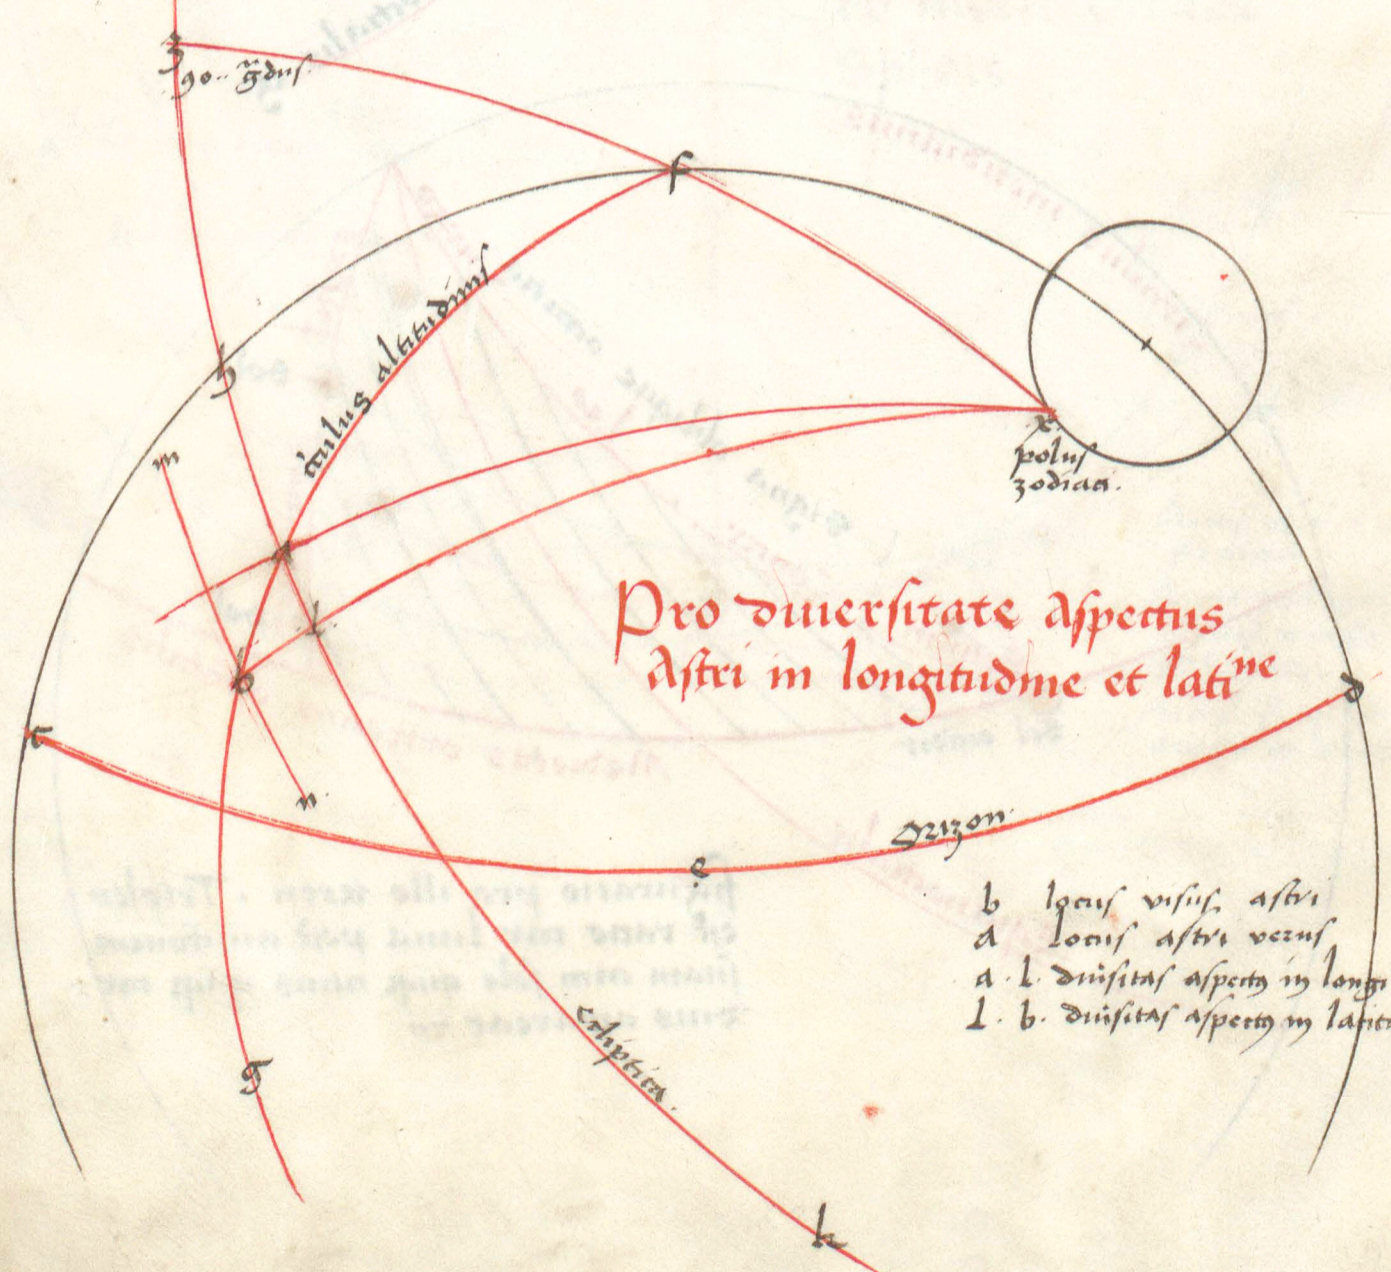 z
90. gdus
f
h
circulus altitudinis
m
x.
polus
zodiaci.
a
L
Pro diuersitate Aspectus
Astri in longitudine et lati^ne
b
d
c
n.
Orizon
e
b locus visus astri
a locus astri verus
a. l. diuersitas aspectus in longi
L. b. diuersitas aspectus in latit
ecliptica.
g
k